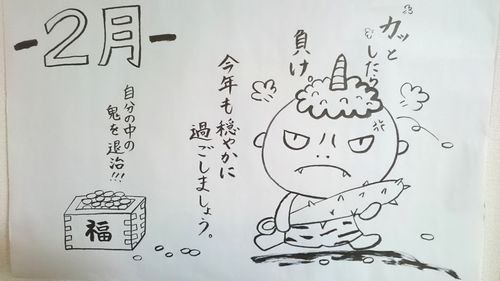 -2月-
カッと
したら
負け。
今年も穏やかに
過ごしましょう。
自分の中の
鬼を退治!!!
福